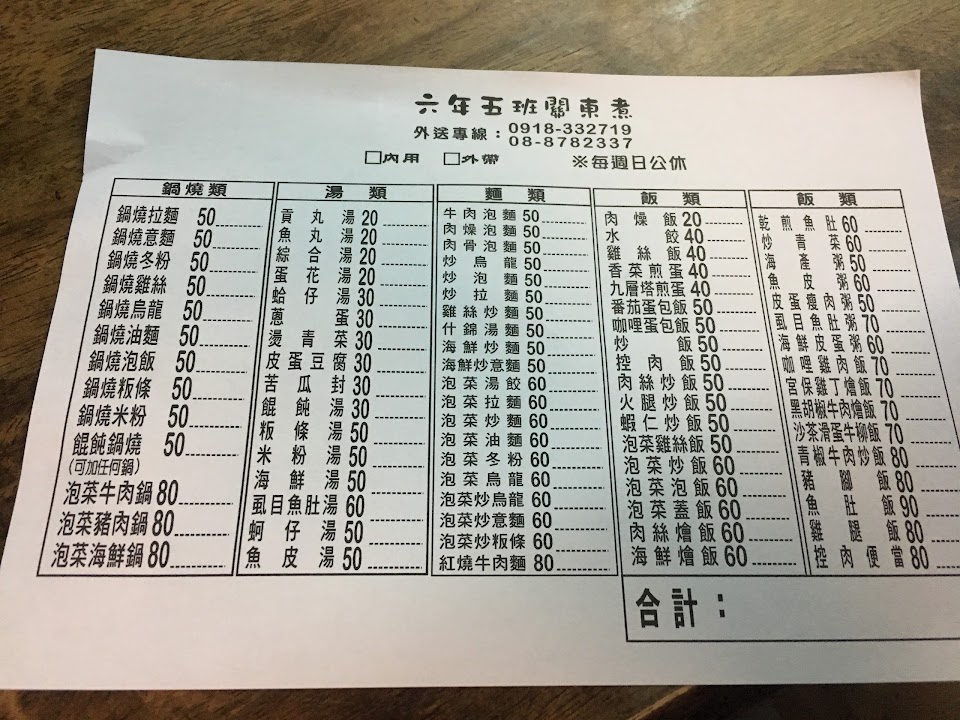 六年五班關東煮
外送專線：0918-332719
08-8782337
□內用 □外帶 ※每週日公休
鍋燒類
鍋燒拉麵 50
鍋燒意麵 50
鍋燒冬粉 50
鍋燒雞絲 50
鍋燒烏龍 50
鍋燒油麵 50
鍋燒泡飯 50
鍋燒粄條 50
鍋燒米粉 50
餛飩鍋燒 50
(可加任何鍋)
泡菜牛肉鍋 80
泡菜豬肉鍋 80
泡菜海鮮鍋 80
湯類
貢丸湯 20
魚丸湯 20
綜合湯 20
蛋花湯 20
蛤仔湯 30
蔥蛋 30
燙青菜 30
皮蛋豆腐 30
苦瓜封 30
餛飩湯 30
粄條湯 50
米粉湯 50
海鮮湯 50
虱目魚肚湯 60
蚵仔湯 50
魚皮湯 50
麵類
牛肉泡麵 50
肉燥泡麵 50
肉骨泡麵 50
炒烏龍 50
炒泡麵 50
炒拉麵 50
雞絲炒麵 50
什錦湯麵 50
海鮮炒麵 50
海鮮炒意麵 50
泡菜湯餃 60
泡菜拉麵 60
泡菜炒麵 60
泡菜油麵 60
泡菜冬粉 60
泡菜烏龍 60
泡菜炒烏龍 60
泡菜炒意麵 60
泡菜炒粄條 60
紅燒牛肉麵 80
飯類
肉燥飯 20
水餃 40
雞絲飯 40
香菜煎蛋 40
九層塔煎蛋 40
番茄蛋包飯 50
咖哩蛋包飯 50
炒飯 50
控肉飯 50
肉絲炒飯 50
火腿炒飯 50
蝦仁炒飯 50
泡菜雞絲飯 50
泡菜炒飯 60
泡菜泡飯 60
泡菜蓋飯 60
肉絲燴飯 60
海鮮燴飯 60
飯類
乾煎魚肚 60
炒青菜 60
海產粥 50
魚皮粥 60
皮蛋瘦肉粥 50
虱目魚肚粥 70
海鮮皮蛋粥 60
咖哩雞肉飯 70
宮保雞丁燴飯 70
黑胡椒牛肉燴飯 70
沙茶滑蛋牛柳飯 70
青椒牛肉炒飯 80
豬腳飯 80
魚肚飯 90
雞腿飯 80
控肉便當 80
合計：